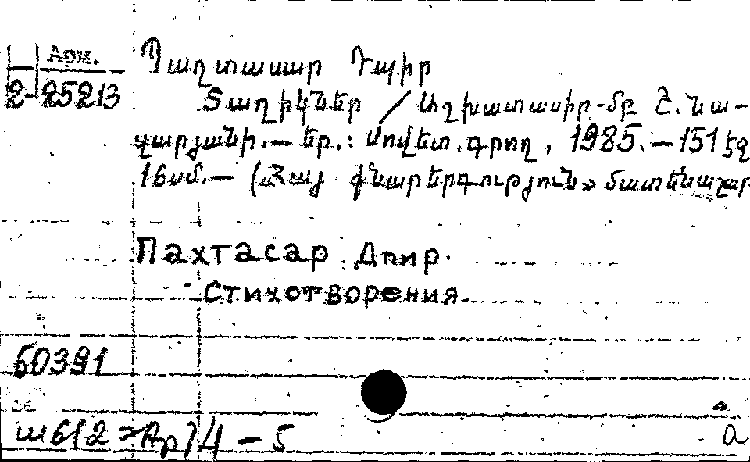 Арм.
2-25213
Պաղտասար Դպիր
Տաղիկներ / Աշխատասիր-մբ Շ. Նա-
զարյանի.— Եր.: Սովետ. գրող, 1985.— 151 էջ
16 սմ.— («Հայ քնարերգություն» մատենաշար
Пахтасар Дпир.
Стихотворения.
60391
ш612 Ар74 - 5
a